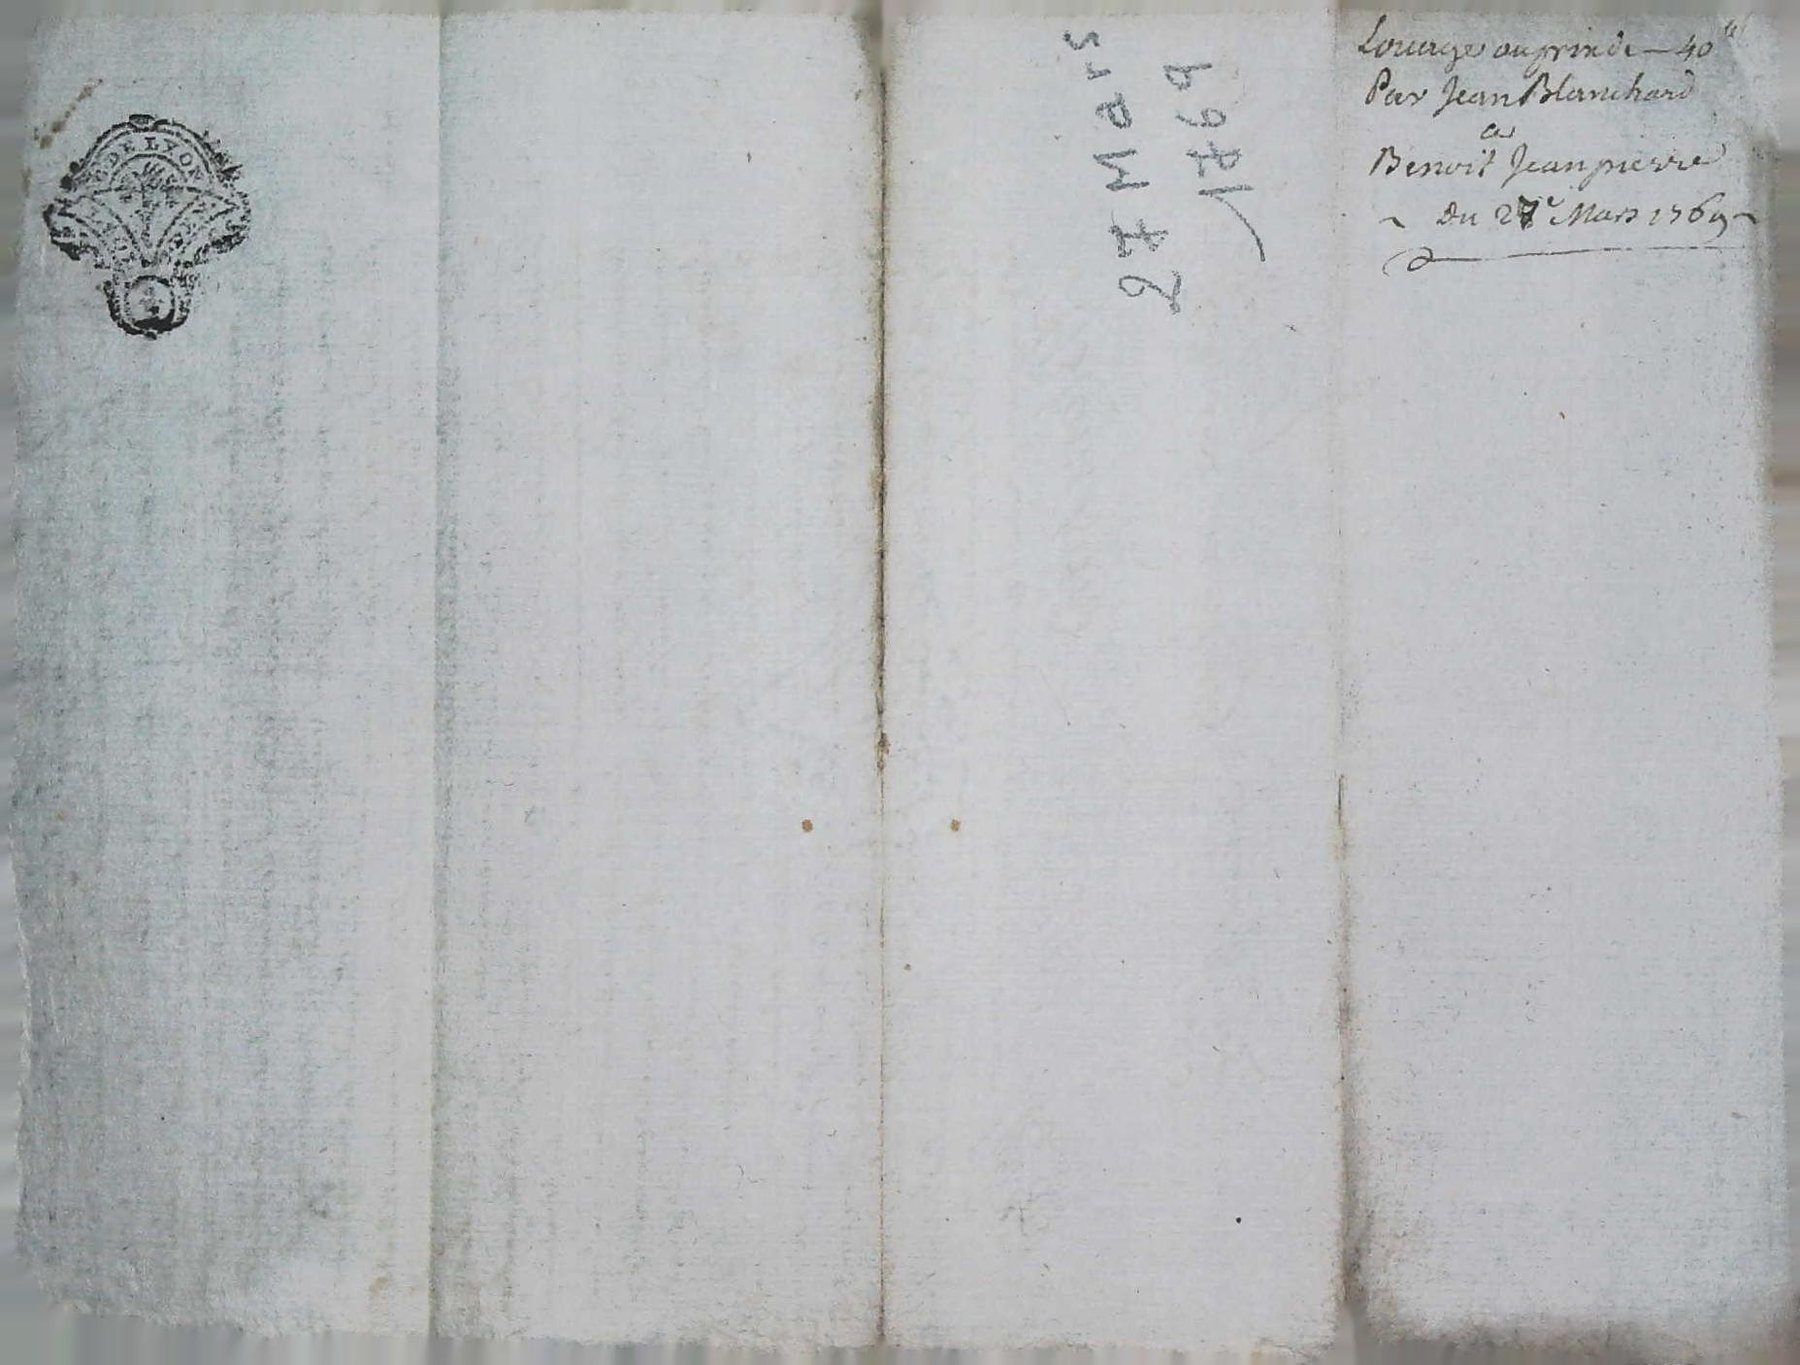 DE LYON
27 Mars
1769
Louage au prix de — 40 ᵗᵗ
Par Jean Blanchard
a
Benoit Jeanpierre
~ Du 27ᵉ Mars 1769 ~